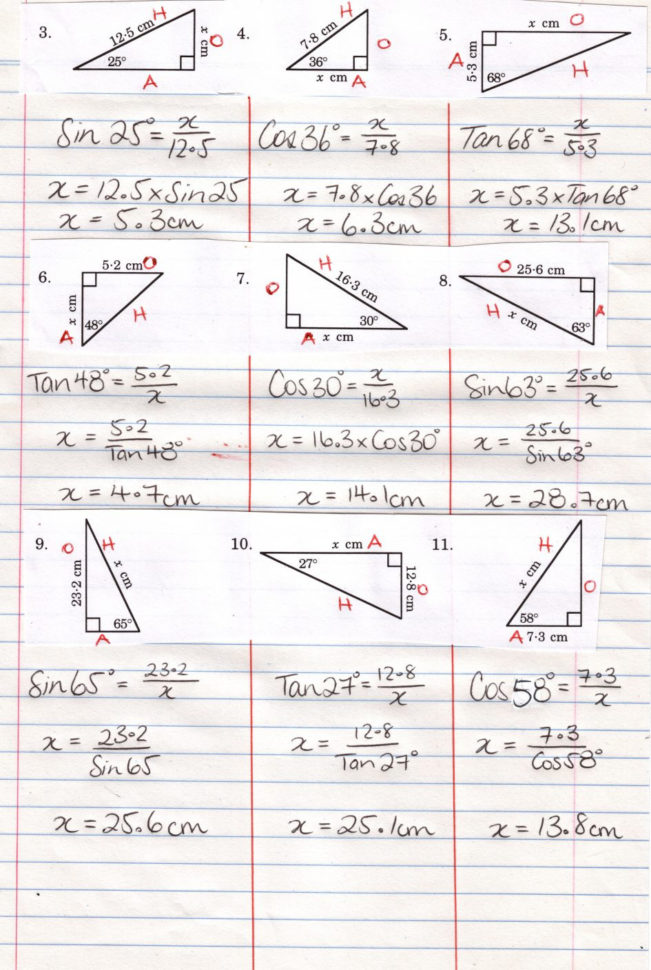 3.
12·5 cm H
x cm O
25°
A
4.
7·8 cm H
O
36°
x cm A
5.
x cm O
A 5·3 cm
68°
H
Sin 25° = x/12.5
x = 12.5 x Sin 25
x = 5.3cm
Cos 36° = x/7.8
x = 7.8 x Cos 36
x = 6.3cm
Tan 68° = x/5.3
x = 5.3 x Tan 68°
x = 13.1cm
6.
5·2 cm O
x cm
A
48°
H
7.
H
16·3 cm
O
30°
A x cm
8.
O 25·6 cm
H x cm
A
63°
Tan 48° = 5.2/x
x = 5.2/Tan 48°
x = 4.7cm
Cos 30° = x/16.3
x = 16.3 x Cos 30°
x = 14.1cm
Sin 63° = 25.6/x
x = 25.6/Sin 63°
x = 28.7cm
9.
O
H
23·2 cm
x cm
65°
A
10.
x cm A
27°
12·8 cm
O
H
11.
H
x cm
O
58°
A 7·3 cm
Sin 65° = 23.2/x
x = 23.2/Sin 65
x = 25.6cm
Tan 27° = 12.8/x
x = 12.8/Tan 27°
x = 25.1cm
Cos 58° = 7.3/x
x = 7.3/Cos 58°
x = 13.8cm